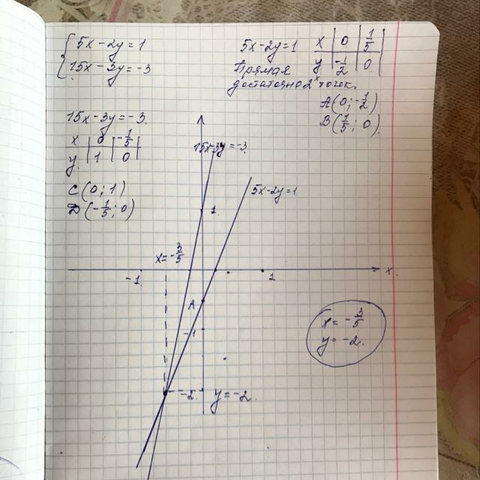 { 5x-2y=1
15x-3y=-3
5x-2y=1
x | 0 | 1/5
y | -1/2 | 0
Прямая
достаточно 2х точек.
A(0; -1/2)
B(1/5; 0)
15x-3y=-3.
x | 0 | -1/5
y | 1 | 0
C(0; 1)
D(-1/5; 0)
15x-3y=-3.
5x-2y=1
1
x=-3/5
-1
1
x
A
-1
-2
y=-2.
x=-3/5
y=-2.